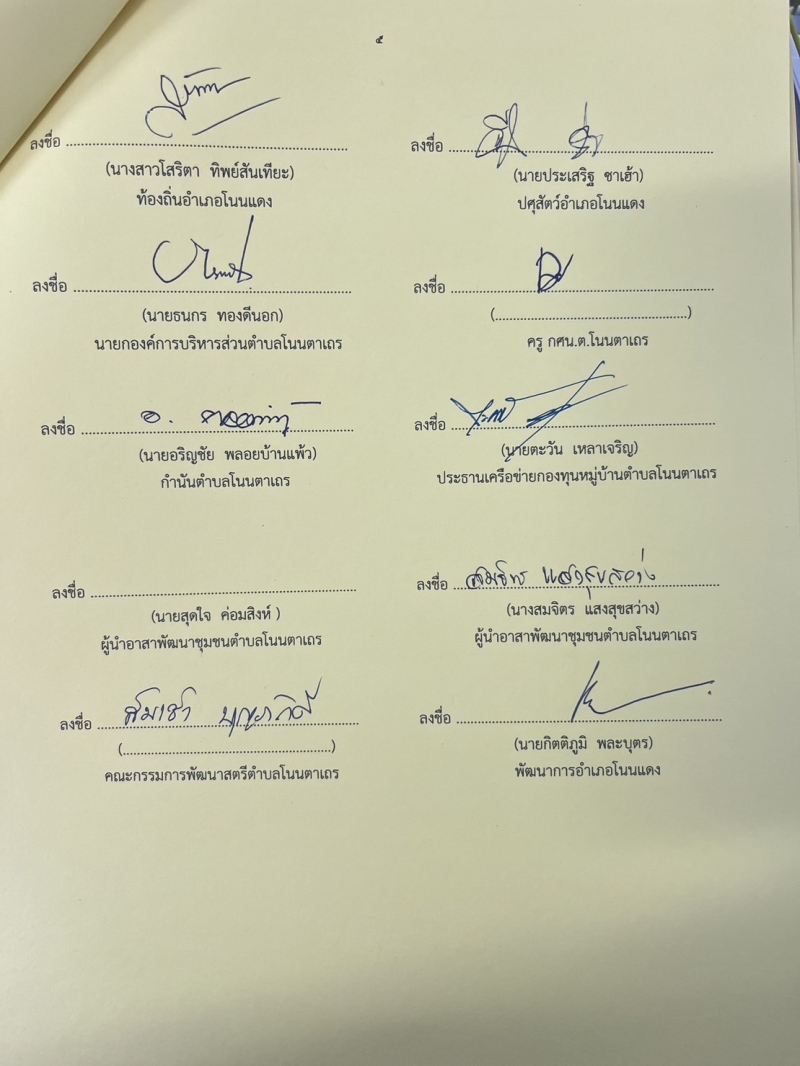 ๕
ลงชื่อ ............................................................
(นางสาวโสริตา ทิพย์สันเทียะ)
ท้องถิ่นอำเภอโนนแดง
ลงชื่อ ............................................................
(นายประเสริฐ ซาเฮ้า)
ปศุสัตว์อำเภอโนนแดง
ลงชื่อ ............................................................
(นายธนกร ทองดีนอก)
นายกองค์การบริหารส่วนตำบลโนนตาเถร
ลงชื่อ ............................................................
(............................................................)
ครู กศน.ต.โนนตาเถร
ลงชื่อ ............................................................
(นายอริญชัย พลอยบ้านแพ้ว)
กำนันตำบลโนนตาเถร
ลงชื่อ ............................................................
(นายตะวัน เหลาเจริญ)
ประธานเครือข่ายกองทุนหมู่บ้านตำบลโนนตาเถร
ลงชื่อ ............................................................
(นายสุดใจ ค่อมสิงห์ )
ผู้นำอาสาพัฒนาชุมชนตำบลโนนตาเถร
ลงชื่อ สมจิตร แสงสุขสว่าง
(นางสมจิตร แสงสุขสว่าง)
ผู้นำอาสาพัฒนาชุมชนตำบลโนนตาเถร
ลงชื่อ ............................................................
(............................................................)
คณะกรรมการพัฒนาสตรีตำบลโนนตาเถร
ลงชื่อ ............................................................
(นายกิตติภูมิ พละบุตร)
พัฒนาการอำเภอโนนแดง